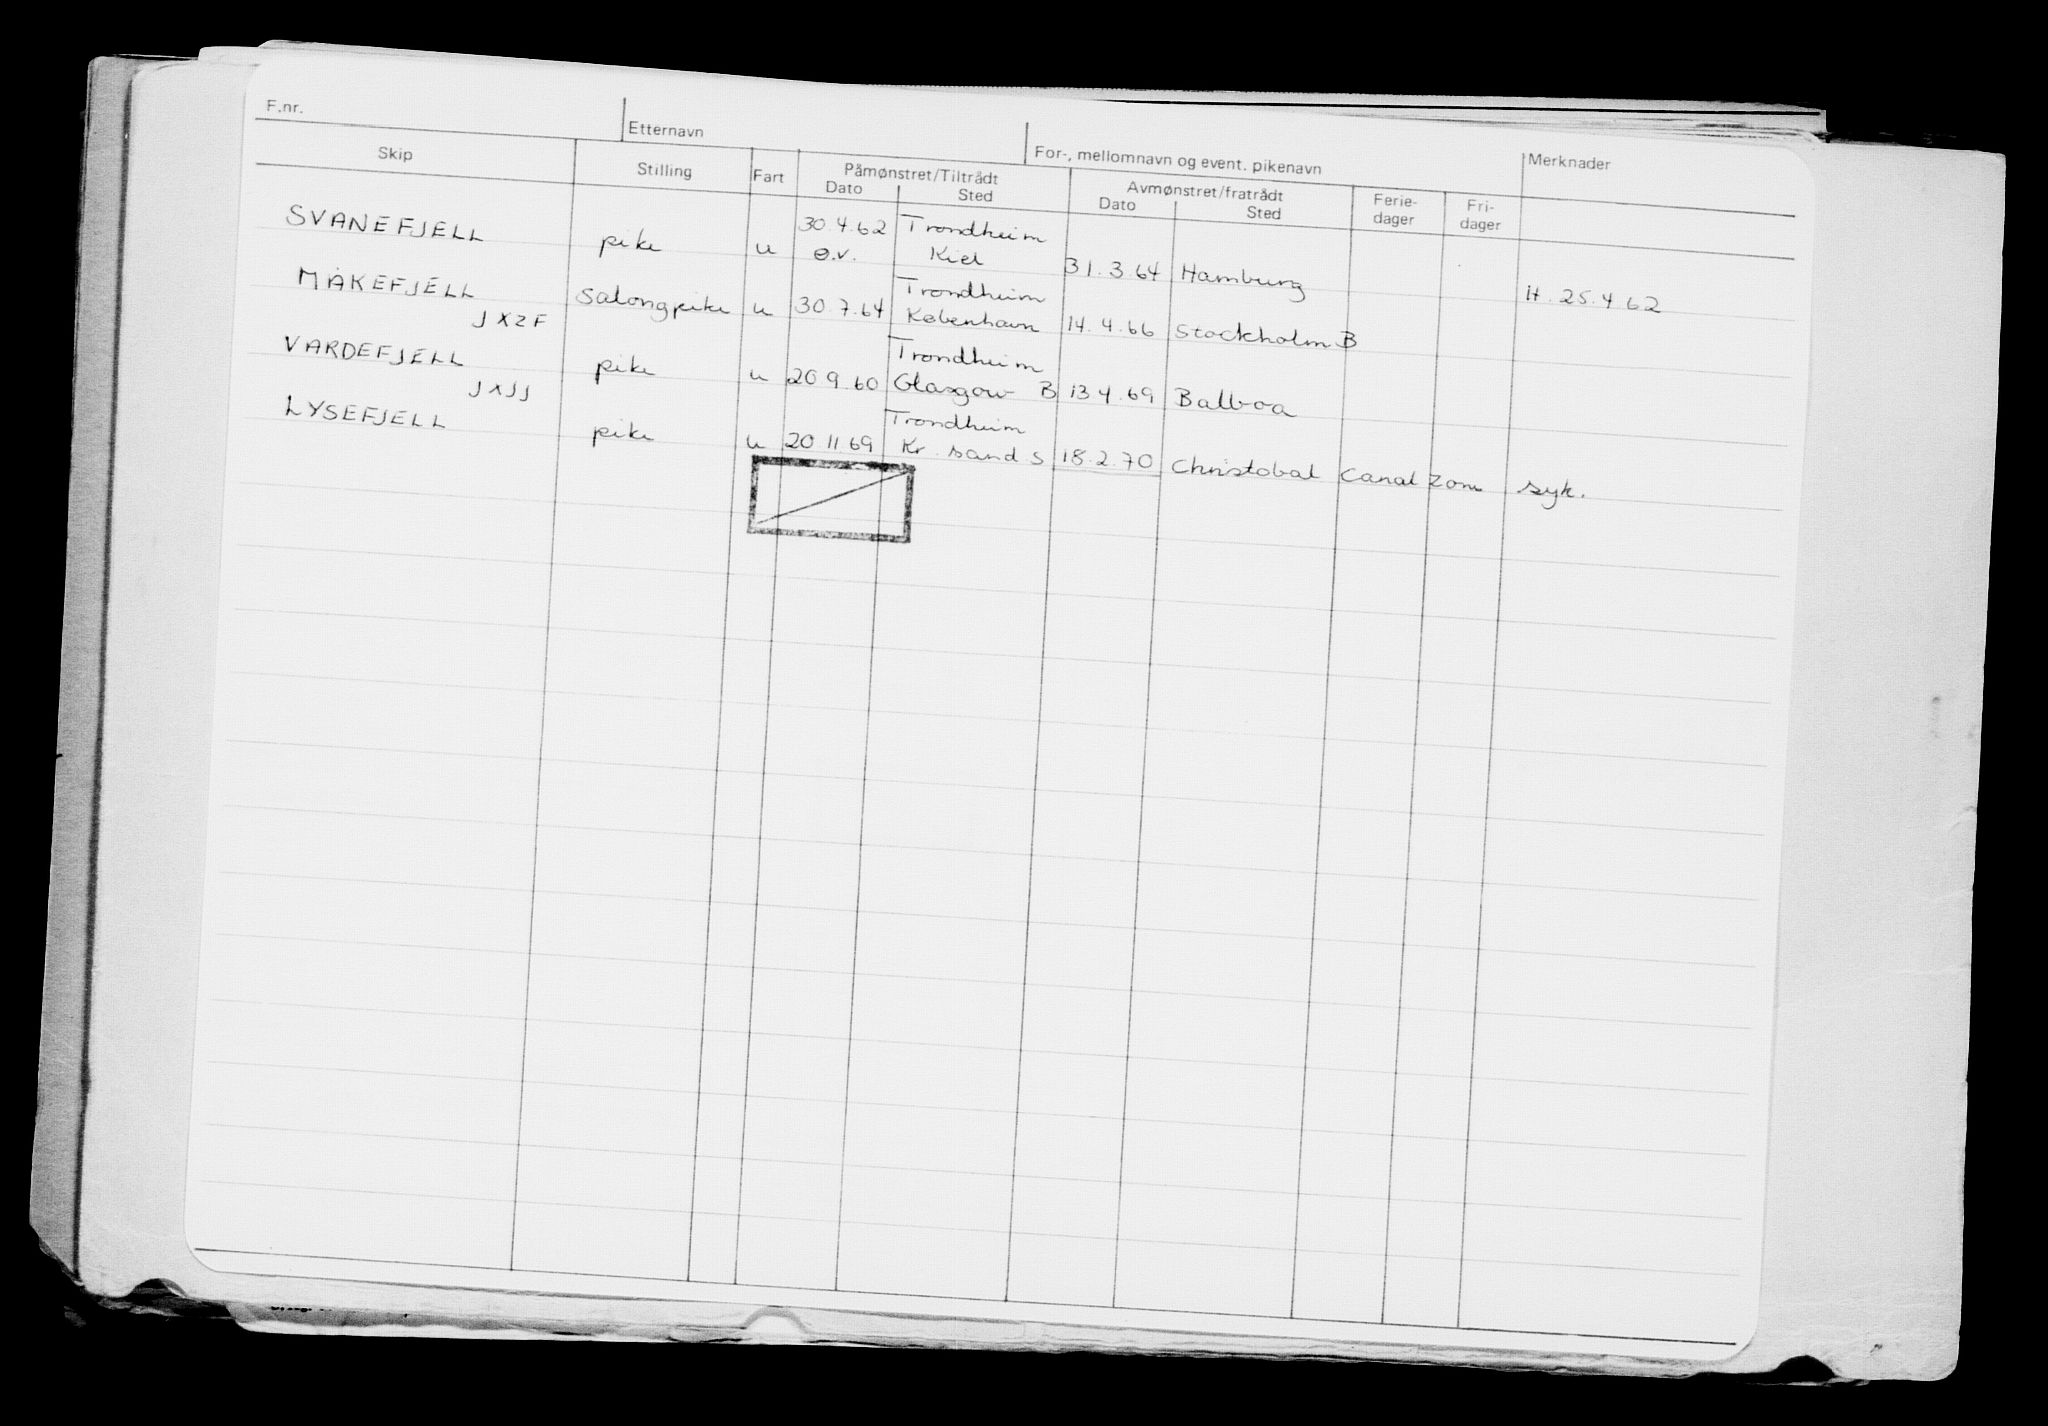 F.nr. Etternavn For-, mellomnavn og event. pikenavn Merknader
Skip Stilling Fart Påmønstret/Tiltrådt Avmønstret/fratrådt Ferie- Fri-
Dato Sted Dato Sted dager dager
SVANEFJELL pike u 30.4.62 Trondheim
ø.v. Kiel 31.3.64 Hamburg H. 25.4 62
MÅKEFJELL Trondheim
JXZF salongpike u 30.7.64 København 14.4.66 Stockholm B
VARDEFJELL Trondheim
JXJJ pike u 20 9.60 Glasgow B 13 4.69 Balboa
LYSEFJELL Trondheim
pike u 20 11 69 Kr. sand S 18.2.70 Christobal Canal Zone syk.